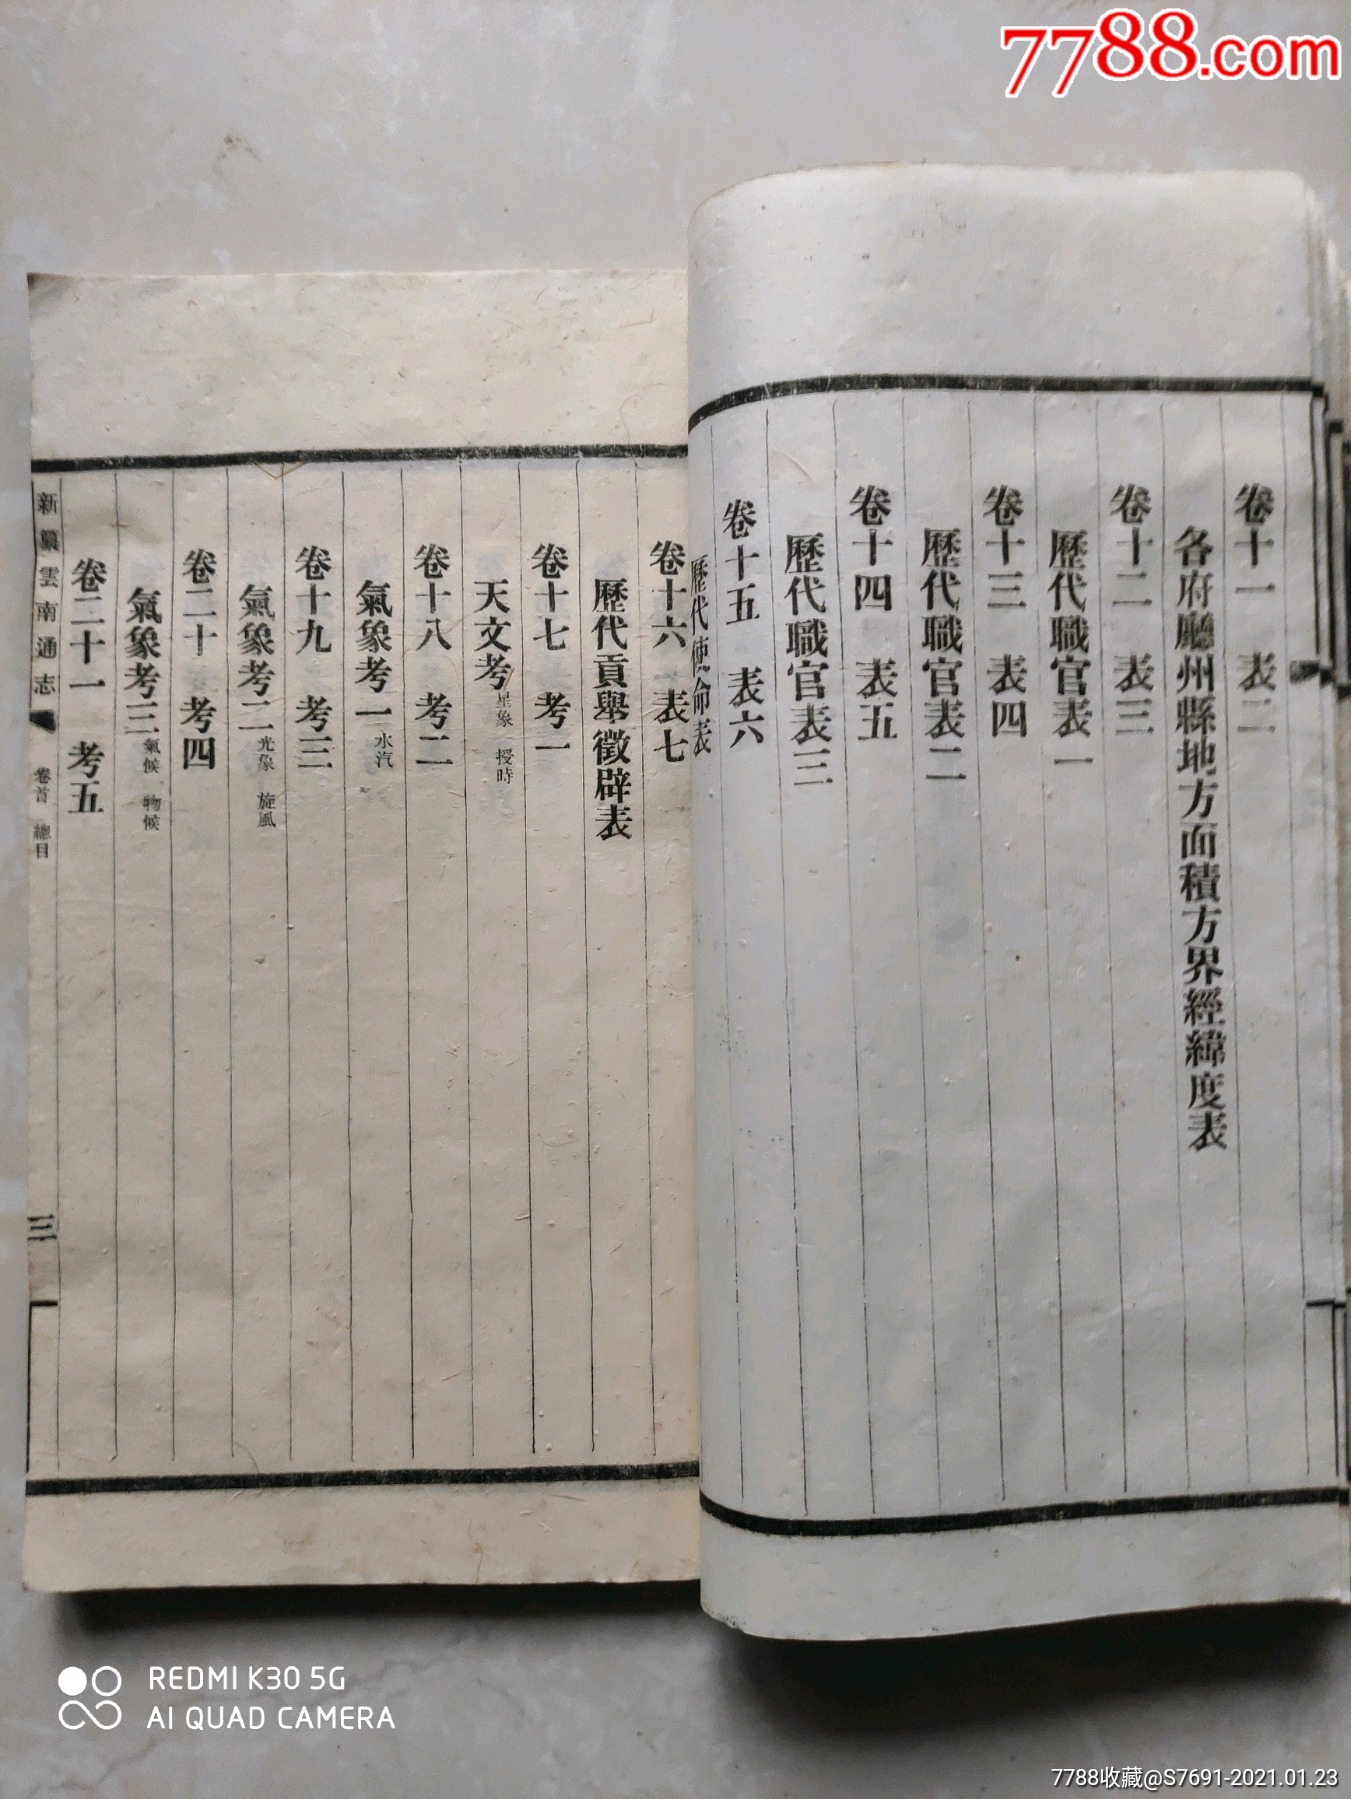 7788.com
卷十一　表二
各府廳州縣地方面積方界經緯度表
卷十二　表三
歷代職官表一
卷十三　表四
歷代職官表二
卷十四　表五
歷代職官表三
卷十五　表六
歷代使命表
卷十六　表七
歷代貢舉徵辟表
卷十七　考一
天文考 星象 授時
卷十八　考二
氣象考一 水汽
卷十九　考三
氣象考二 光象 旋風
卷二十　考四
氣象考三 氣候 物候
卷二十一　考五
新纂雲南通志 卷首 總目 三
REDMI K30 5G
AI QUAD CAMERA
7788收藏@S7691-2021.01.23